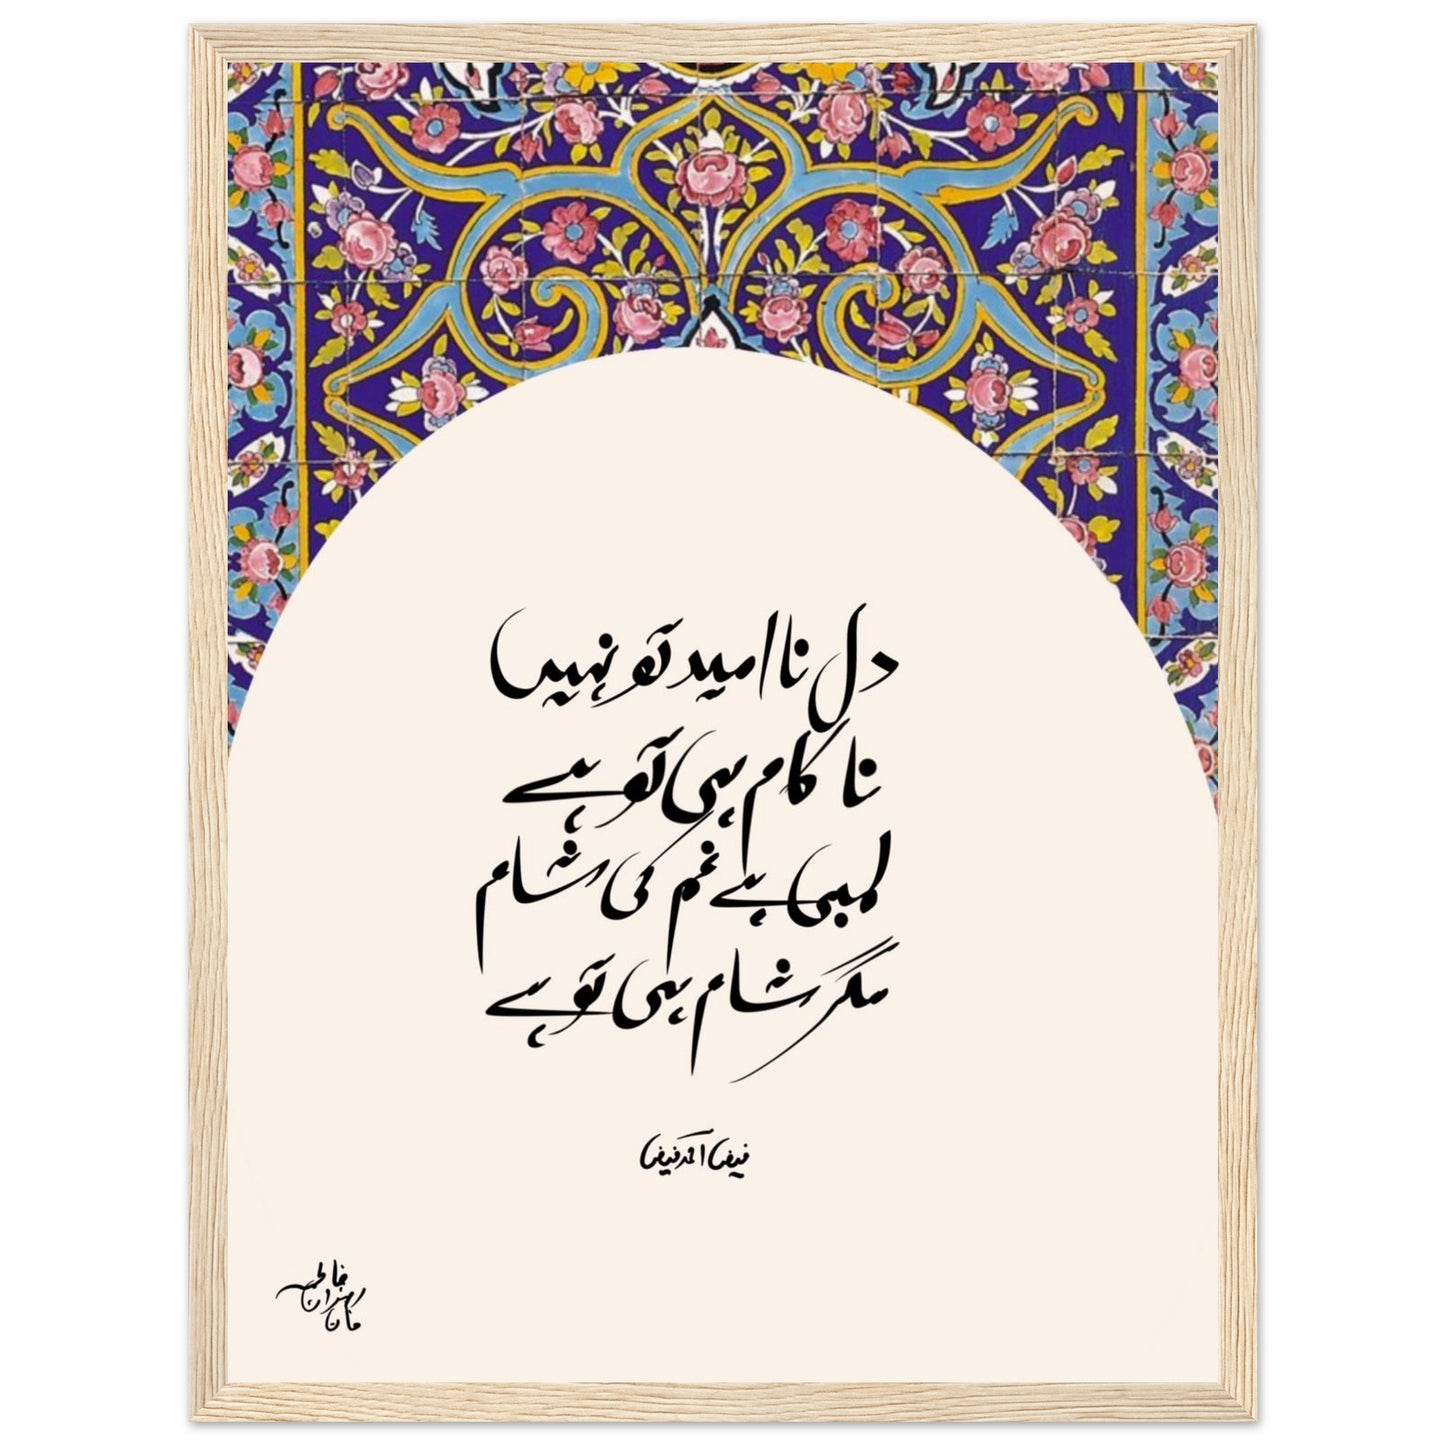 دل نا امید تو نہیں
ناکام ہی تو ہے
لمبی ہے غم کی شام
مگر شام ہی تو ہے
فیض احمد فیض